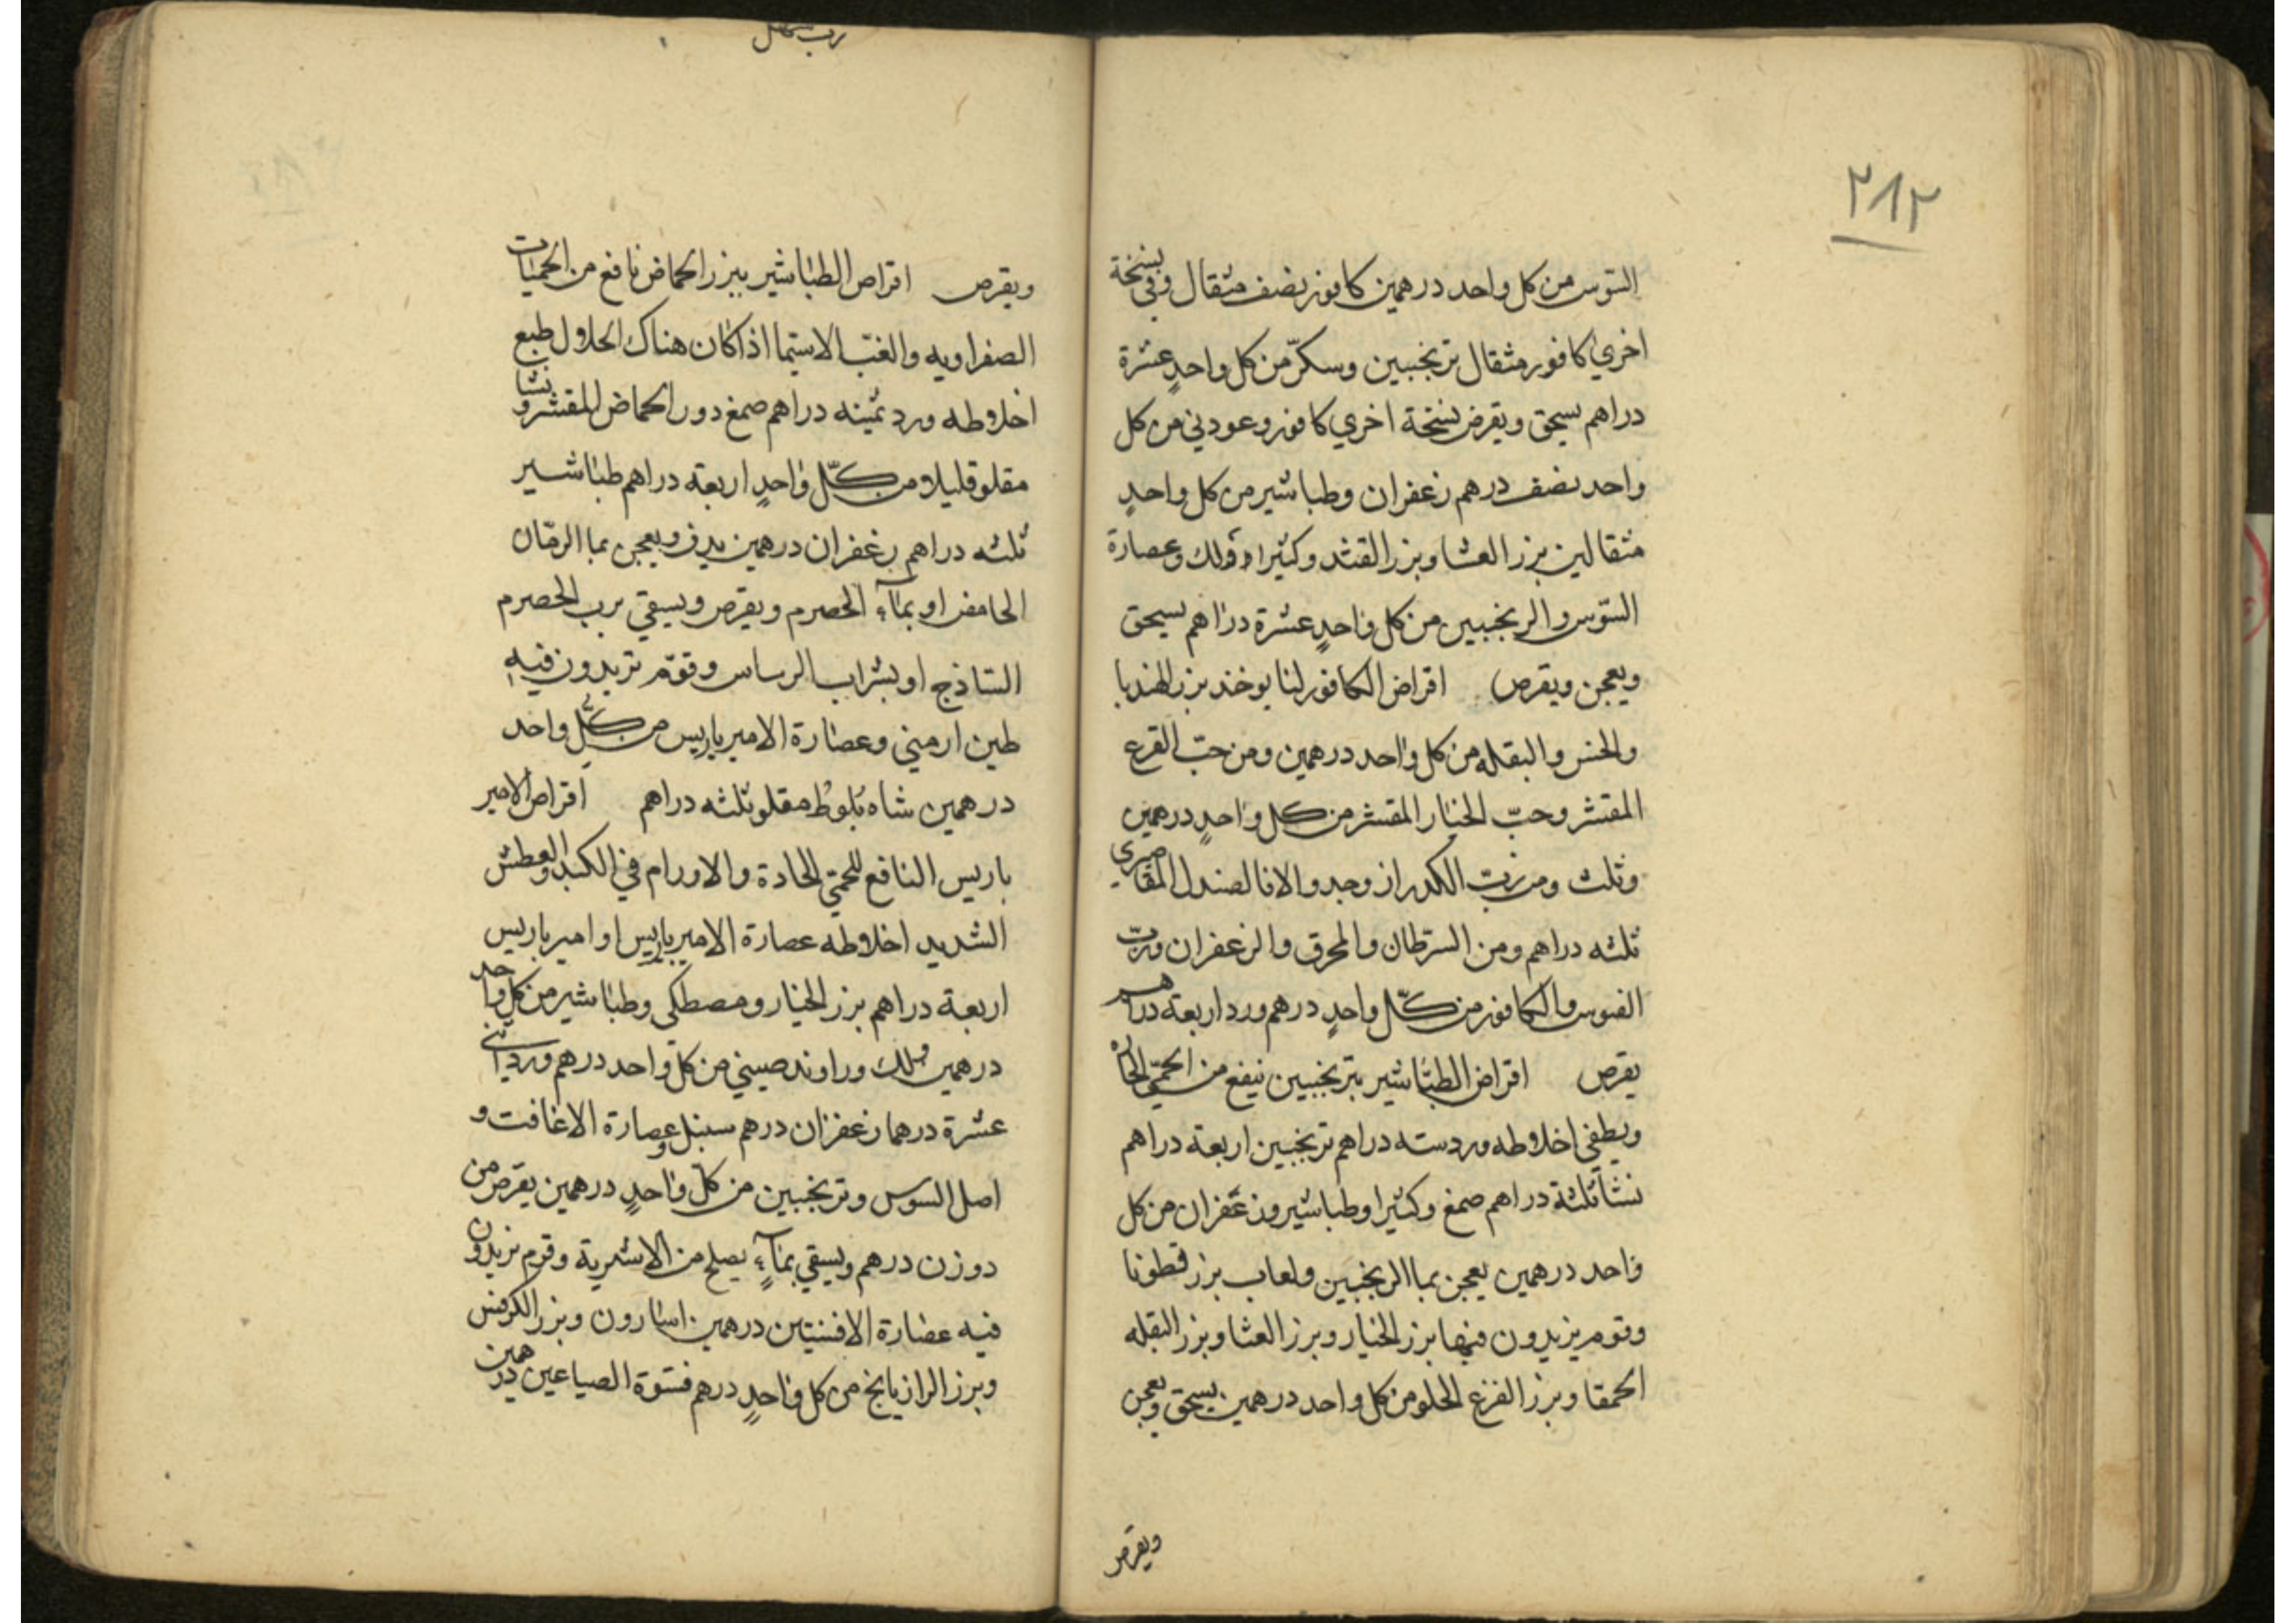 ٢٨٢
السّوس من كل واحد درهمين كافور نصف مثقال وفي نسخة
اخري كافور مثقال ترنجبين وسكرّ من كل واحدٍ عشرة
دراهم يسحق ويقرص نسخة اخري كافور وعود ني من كل
واحد نصف درهم زعفران وطباشير من كل واحدٍ
مثقالين بزر العثا وبزر القثد وكثيرا ولك وعصارة
السّوس والرنجبين من كل واحدٍ عشرة دراهم يسحق
ويعجن ويقرص اقراص الكافور لنا يوخذ بزر الهندبا
والخس والبقله من كل واحد درهمين ومن حبّ القرع
المقشر وحبّ الخيار المقشر من كل واحدٍ درهمين
وثلث ومن الصندل المقاصري
ثلثه دراهم ومن السرطان والمحرق والزعفران وربّ
السوس والكافور من كلّ واحدٍ درهم ورد اربعة دراهم
يقرص اقراص الطبّاشير بترنجبين ينفع من الحمّي الحاره
ويطفي اخلاطه ورد سته دراهم ترنجبين اربعة دراهم
نشا ثلثة دراهم صمغ وكثيرا وطباشير وزعفران من كل
واحد درهمين يعجن بما الرنجبين ولعاب بزر قطونا
وقوم يزيدون فيها بزر الخيار وبزر العثا وبزر البقله
الحمقا وبزر القرع الحلو من كل واحد درهمين يسحق ويعجن
ويقرص
ويقرص اقراص الطباشير ببزر الحماض نافع من الحميات
الصفراويه والغبّ الاسيّما اذا كان هناك انحلال طبع
اخلاطه ورد ثمينه دراهم صمغ دور الحماض المقشر ونشا
مقلو قليلا من كلّ واحدٍ اربعة دراهم طباشير
ثلثه دراهم زعفران درهمين يدق ويعجن بما الرمّان
الحامض او بمآء الحصرم ويقرص ويسقي برب الحصرم
السّاذج او بشراب الرساس وقوّم تزيدون فيه
طين ارمني وعصارة الامير باريس من كلّ واحد
درهمين شاه بلوط مقلو ثلثه دراهم اقراص الامير
باريس النافع للحمّي الحادة والاورام في الكبد والعطش
الشديد اخلاطه عصارة الامير باريس او امير باريس
اربعة دراهم بزر الخيار ومصطكي وطباشير من كل واحد
درهمين ولك وراوند صيني من كل واحد درهم ورد اثني
عشرة درهما زعفران درهم سنبل وعصارة الاغافت و
اصل السوس وترنجبين من كلّ واحدٍ درهمين يقرص من
دوزن درهم ويسقي بمآءٍ يصلح من الاشربة وقوم يزيدون
فيه عصارة الافسنتين درهمين اسارون وبزر الكرفس
وبزر الرازيانج من كل واحدٍ درهم فسوة الصباعين درهمين